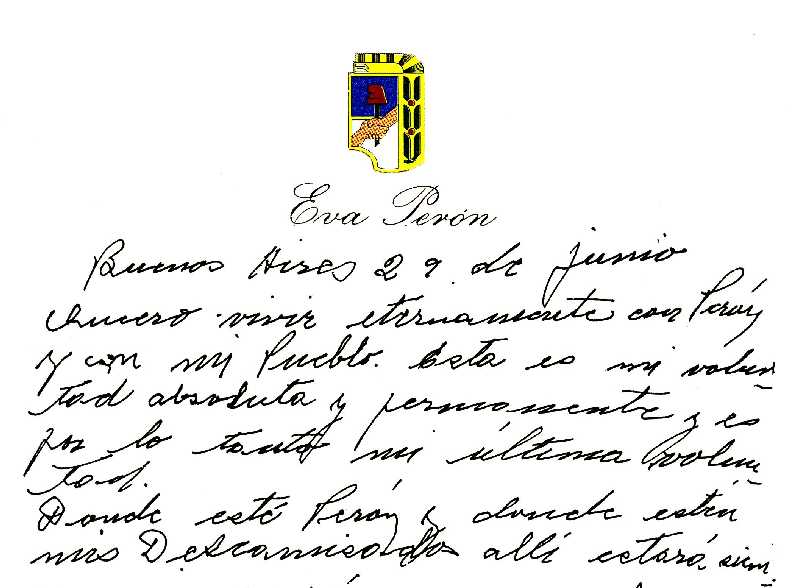 Eva Perón
Buenos Aires 29 de junio
Quiero vivir eternamente con Perón
y con mi Pueblo. Esta es mi volun
tad absoluta y permanente y es
por lo tanto mi última volun
tad.
Donde esté Perón y donde estén
mis Descamisados allí estará siem